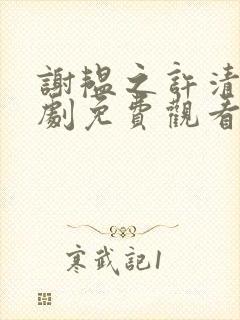 謝韞之許清
劇免費觀看
寒武記1